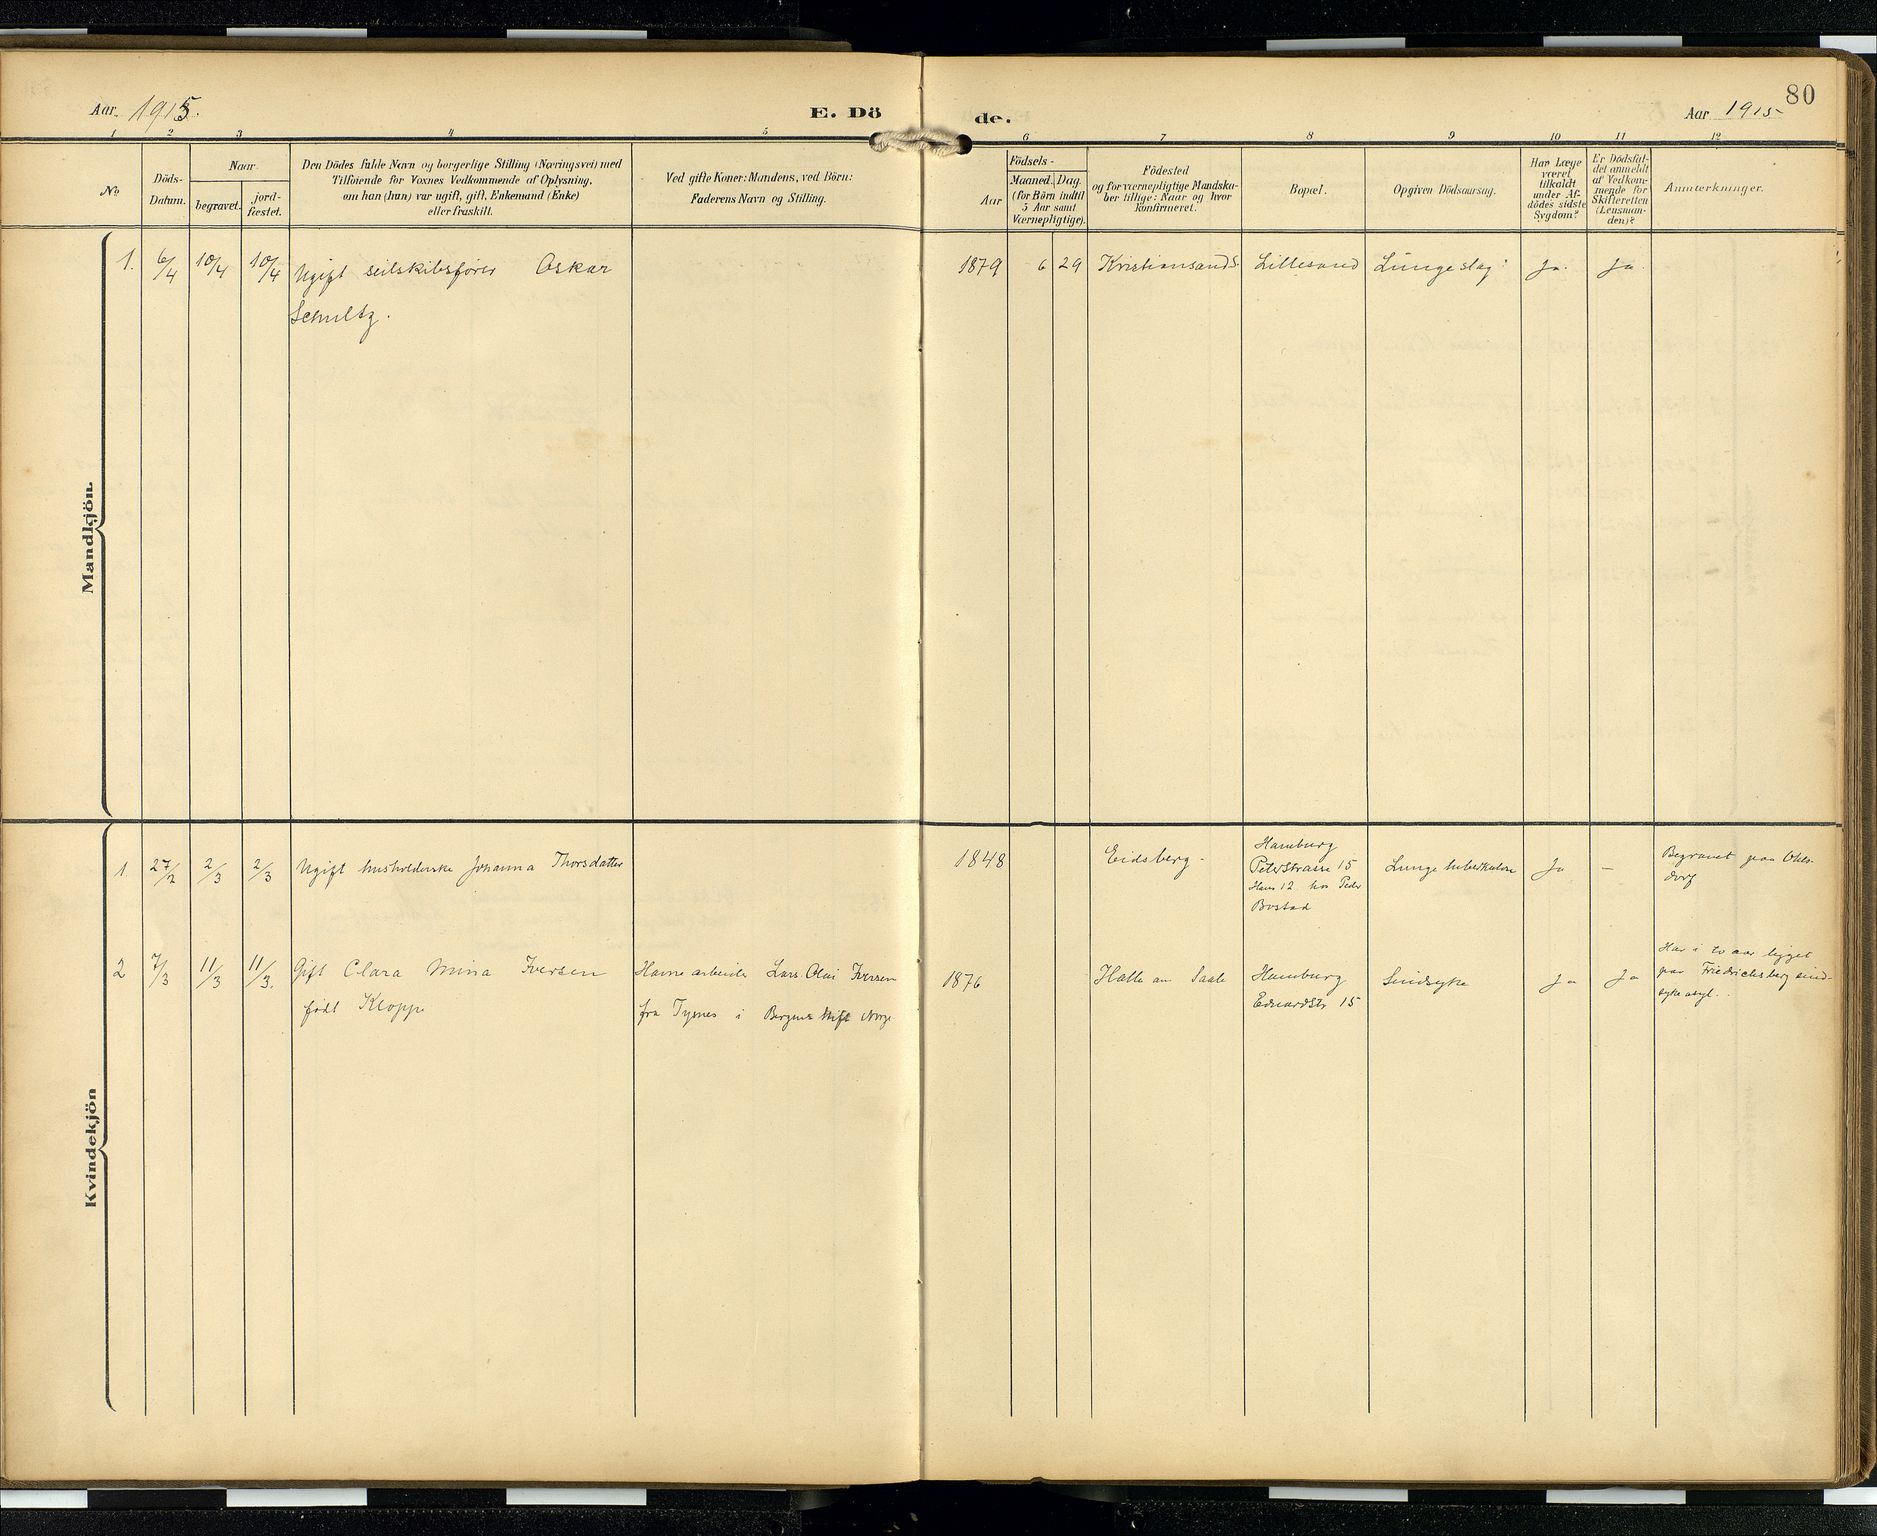 80
Aar 1915.
E. Dö
de.
Aar 1915
1 2 3 4 5 6 7 8 9 10 11 12
No
Döds-
Datum.
Naar
begravet.
jord-
fæstet.
Den Dödes fulde Navn og borgerlige Stilling (Næringsvei) med
Tilföiende for Voxnes Vedkommende af Oplysning,
om han (hun) var ugift, gift, Enkemand (Enke)
eller fraskilt.
Ved gifte Koner: Mandens, ved Börn:
Faderens Navn og Stilling.
Födsels-
Aar
Maaned. Dag.
(for Börn indtil
5 Aar samt
Værnepligtige).
Födested
og for værnepligtige Mandska-
ber tillige: Naar og hvor
konfirmeret.
Bopæl.
Opgiven Dödsaarsag.
Har Læge
været
tilkaldt
under Af-
dödes sidste
Sygdom?
Er Dödsfal-
det anmeldt
af Vedkom-
mende for
Skifteretten
(Lensman-
den)?
Anmærkninger.
Mandkjön.
1. 6/4 10/4 10/4 Ugift seilskibsfører Oskar
Schultz.
1879 6 29 Kristiansands Lillesand Lungeslag Ja. Ja.
Kvindekjön
1. 27/2 2/3 2/3 Ugift husholderske Johanna Thorsdatter
1848 Eidsberg.
Hamburg
Peterstrasse 15
Haus 12 hos Peder
Bostad
Lungetuberkulose Ja –
Begravet paa Ohls-
dorf
2 7/3 11/3 11/3. Gift Clara Mina Iversen
født Kloppe
Havnearbeider Lars Olai Iversen
fra Tysnes i Bergens stift Norge
1876 Halle an Saale
Hamburg
Eduardstr 15
Sindsyke Ja Ja
Har i to aar ligget
paa Friedrichsberg sind-
sykeasyl.